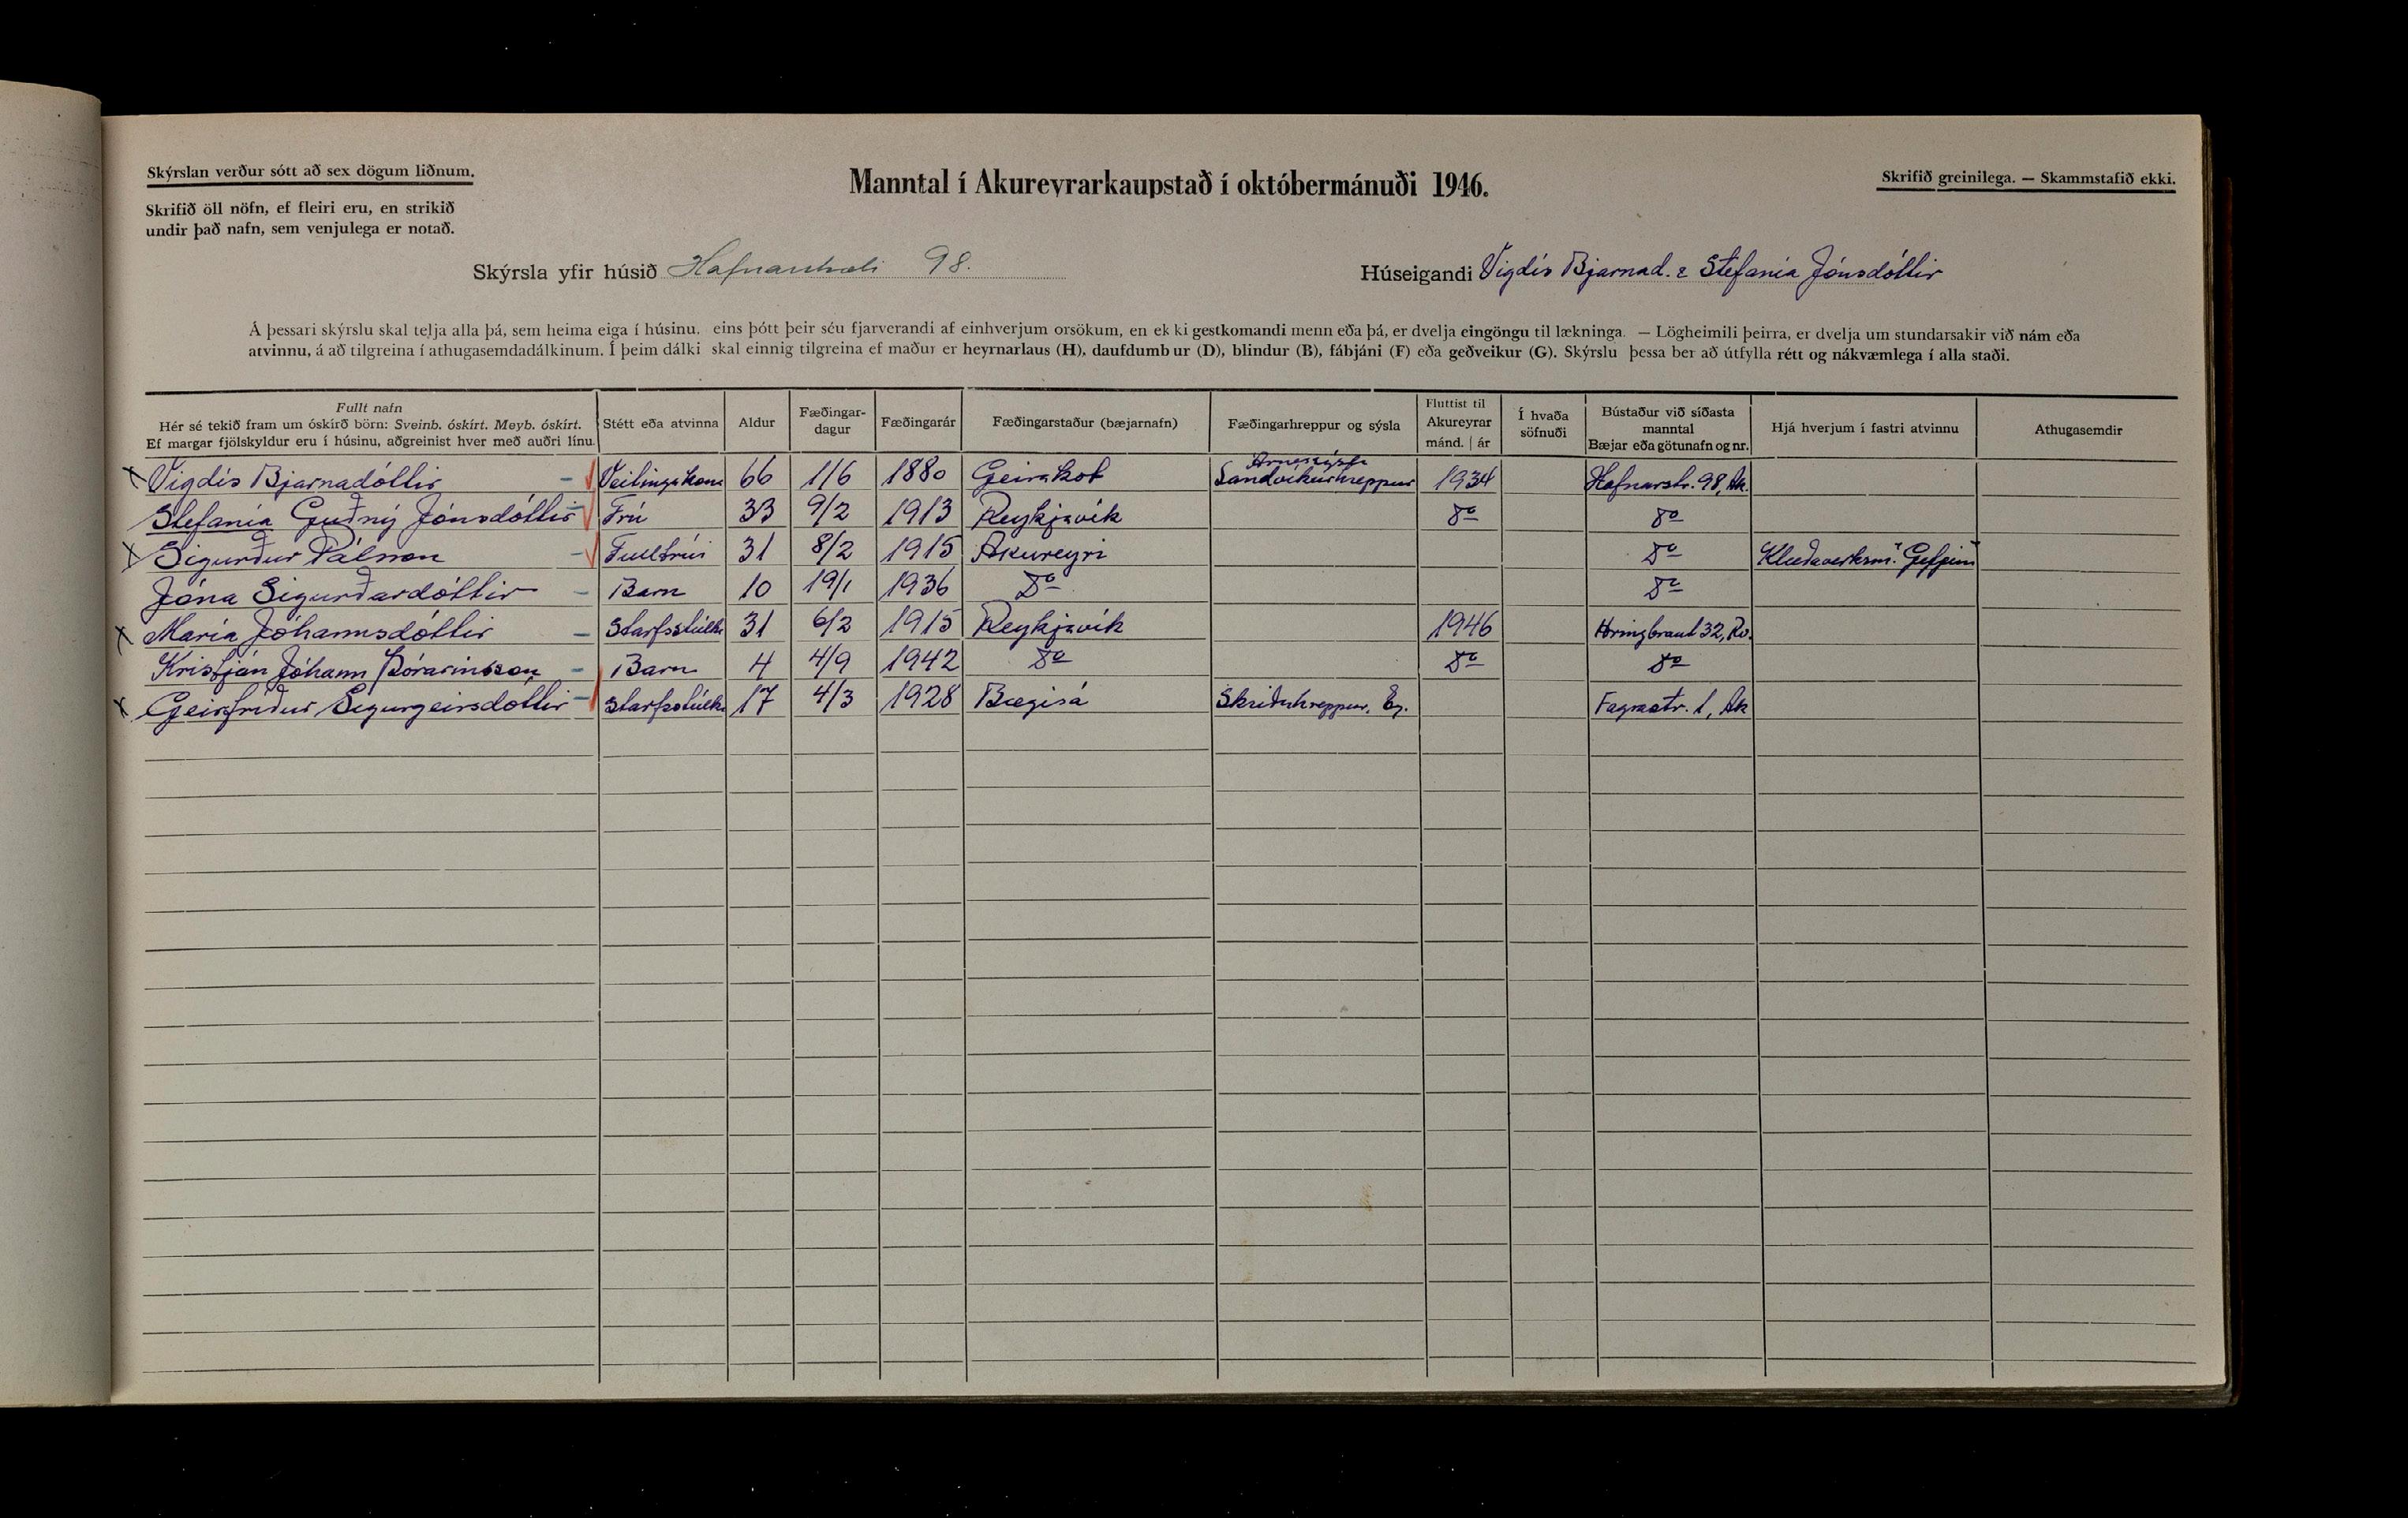 Skýrslan verður sótt að sex dögum liðnum.
Manntal í Akureyrarkaupstað í októbermánuði 1946.
Skrifið greinilega. — Skammstafið ekki.
Skrifið öll nöfn, ef fleiri eru, en strikið
undir það nafn, sem venjulega er notað.
Skýrsla yfir húsið Hafnarstræti 98.
Húseigandi Vigdís Bjarnad. & Stefanía Jónsdóttir
Á þessari skýrslu skal telja alla þá, sem heima eiga í húsinu, eins þótt þeir séu fjarverandi af einhverjum orsökum, en ekki gestkomandi menn eða þá, er dvelja eingöngu til lækninga. — Lögheimili þeirra, er dvelja um stundarsakir við nám eða
atvinnu, á að tilgreina í athugasemdadálkinum. Í þeim dálki skal einnig tilgreina ef maður er heyrnarlaus (H), daufdumbur (D), blindur (B), fábjáni (F) eða geðveikur (G). Skýrslu þessa ber að útfylla rétt og nákvæmlega í alla staði.
Fullt nafn
Hér sé tekið fram um óskírð börn: Sveinb. óskírt. Meyb. óskírt.
Ef margar fjölskyldur eru í húsinu, aðgreinist hver með auðri línu.
Stétt eða atvinna
Aldur
Fæðingar-
dagur
Fæðingarár
Fæðingarstaður (bæjarnafn)
Fæðingarhreppur og sýsla
Fluttist til
Akureyrar
mánd. | ár
Í hvaða
söfnuði
Bústaður við síðasta
manntal
Bæjar eða götunafn og nr.
Hjá hverjum í fastri atvinnu
Athugasemdir
x Vigdís Bjarnadóttir - Veitingakona 66 1/6 1880 Geirakot Árnessýsla Sandvíkurhreppur 1934 Hafnarstr. 98, Ak.
Stefanía Guðný Jónsdóttir - Frú 33 9/2 1913 Reykjavík do do
x Sigurður Pálsson - Fulltrúi 31 8/2 1915 Akureyri do Klæðaverksm. "Gefjun"
Jóna Sigurðardóttir - Barn 10 19/1 1936 do do
x María Jóhannsdóttir - Starfsstúlka 31 6/2 1915 Reykjavík 1946 Hringbraut 32, Rv.
Kristján Jóhann Þórarinsson - Barn 4 4/9 1942 do do do
x Geirfríður Sigurgeirsdóttir - Starfsstúlka 17 4/3 1928 Bægisá Skriðuhreppur, Ey. Fagrastr. 1, Ak